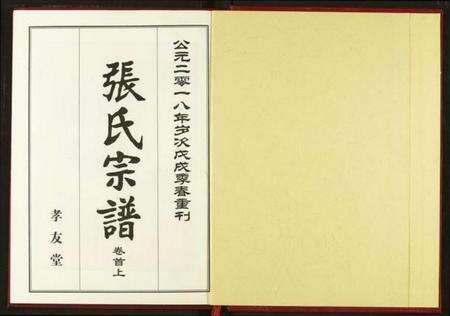 公元二零一八年岁次戊戌季春重刊
張氏宗譜
卷首上
孝友堂